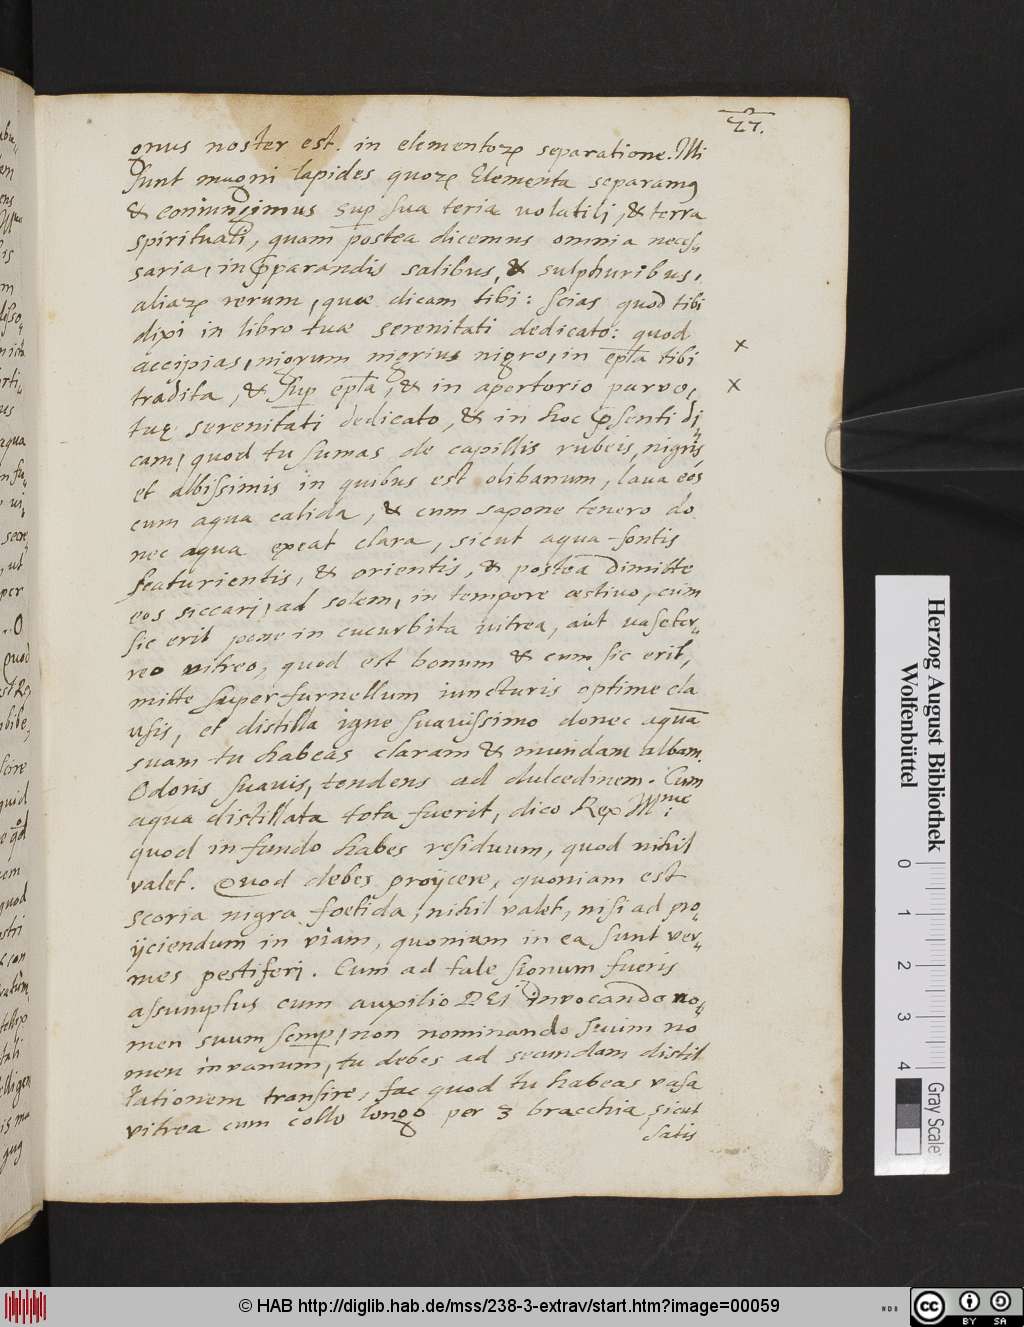 27.
gnus noster est. in elementorꝝ separatione. Mi
sunt magni lapides quorꝝ Elementa separamꝰ
& coniungimus sup sua teria uolatili, & terra
spirituali, quam postea dicemus omnia neces„
saria, in ꝑparandis salibus, & sulphuribus,
aliarꝝ rerum, quæ dicam tibi: scias quod tibi
dixi in libro tuæ serenitati dedicato: quod
accipias, nigrum nigrius nigro, in epl̄a tibi
tradita, & sup epl̄a, & in apertorio paruo,
tuę serenitati dedicato, & in hoc p̄senti di„
cam, quod tu sumas de capillis rubeis, nigris
et albissimis in quibus est olibanum, laua eos
cum aqua calida, & cum sapone tenero do
nec aqua exeat clara, sicut aqua fontis
scaturientis, & orientis, & postea dimitte
eos siccari, ad solem, in tempore æstiuo, cum
sic erit pone in cucurbita uitrea, aut uase ter„
reo uitreo, quod est bonum & cum sic erit,
mitte super furnellum iuncturis optime cla
usis, et distilla igne suauissimo donec aquā
suam tu habeas claram & mundam albam.
Odoris suauis, tendens ad dulcedinem. Cum
aqua distillata tota fuerit, dico Rex Mme:
quod in fundo habes residuum, quod nihil
valet. Quod debes proijcere, quoniam est
scoria nigra foetida, nihil valet, nisi ad pro„
ijciendum in viam, quoniam in ea sunt ver„
mes pestiferi. Cum ad tale signum fueris
assumptus cum auxilio DEI inuocando no„
men suum semp, non nominando suum no
men in vanum, tu debes ad secundam distil
lationem transire, fac quod tu habeas vasa
vitrea cum collo longo per 3 bracchia sicut
satis
x
x
Herzog August Bibliothek
Wolfenbüttel
0 1 2 3 4
Gray Scale
© HAB http://diglib.hab.de/mss/238-3-extrav/start.htm?image=00059
cc BY SA